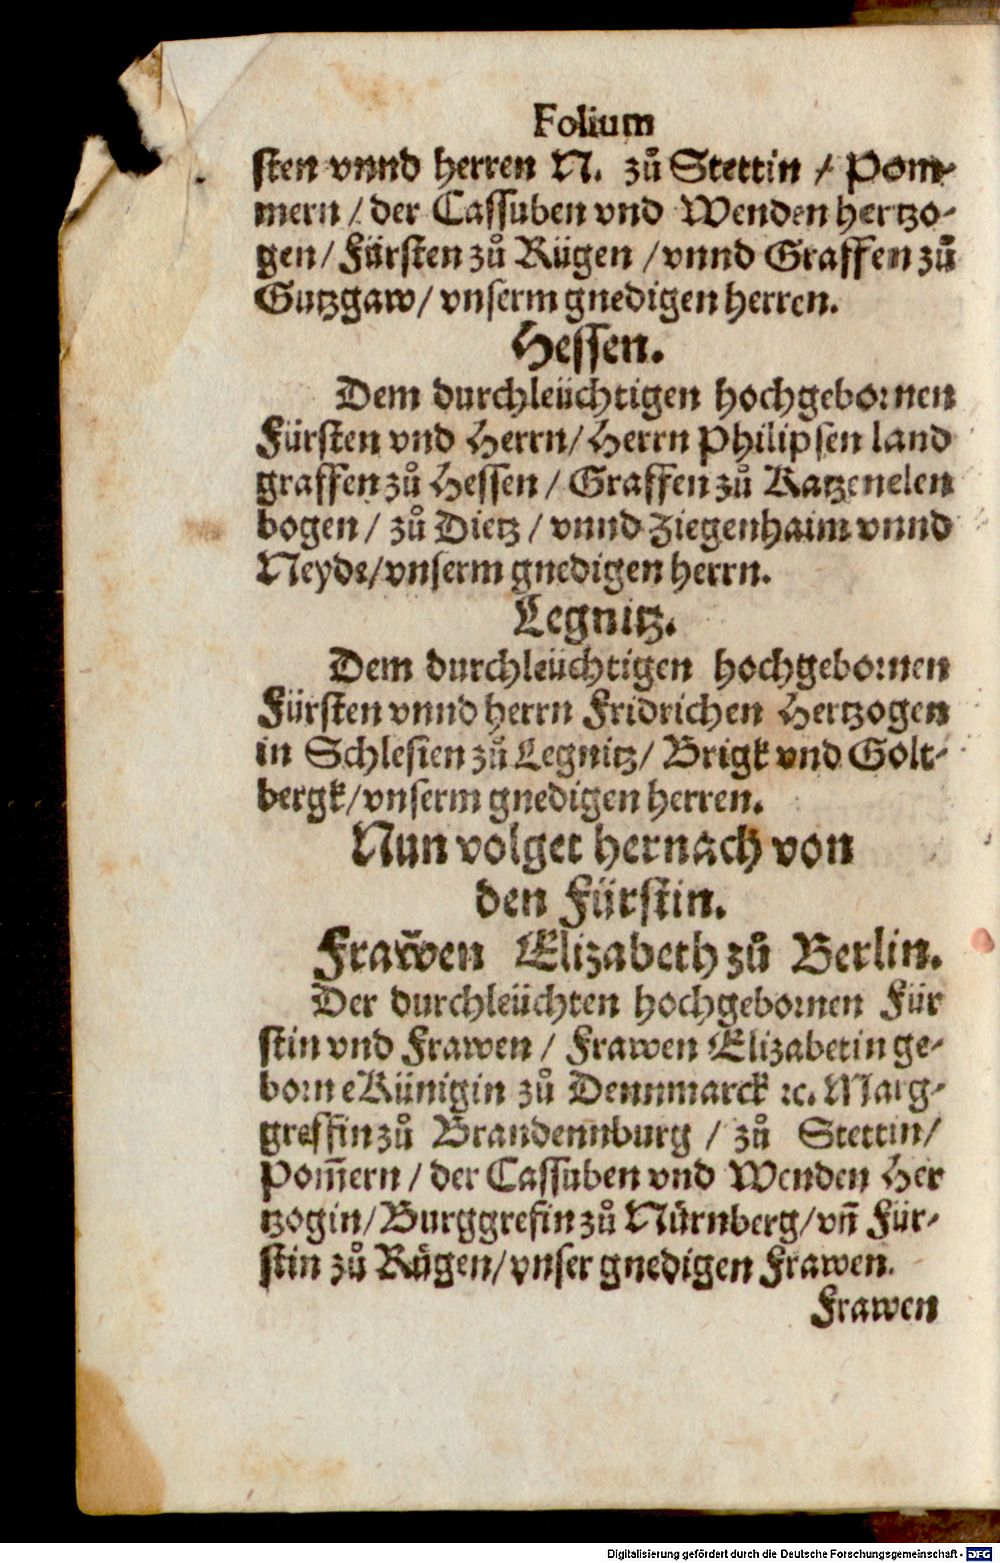 Folium
sten vnnd herren N. zů Stettin / Pom-
mern / der Cassuben vnd Wenden hertzo-
gen / Fürsten zů Rügen / vnnd Graffen zů
Gutzgaw / vnserm gnedigen herren.
Hessen.
Dem durchleüchtigen hochgebornen
Fürsten vnd Herrn / Herrn Philipsen land
graffen zů Hessen / Graffen zů Katzenelen
bogen / zů Dietz / vnnd Ziegenhaim vnnd
Neyde / vnserm gnedigen herrn.
Legnitz.
Dem durchleüchtigen hochgebornen
Fürsten vnnd herrn Fridrichen Hertzogen
in Schlesien zů Legnitz / Brigk vnd Golt-
bergk / vnserm gnedigen herren.
Nun volget hernach von
den Fürstin.
Frawen Elizabeth zů Berlin.
Der durchleüchten hochgebornen Für
stin vnd Frawen / Frawen Elizabetin ge-
born e Künigin zů Dennmarck ⁊c. Marg-
greffin zů Brandennburg / zů Stettin /
Pom̄ern / der Cassuben vnd Wenden Her
tzogin / Burggrefin zů Nürnberg / vn̄ Für-
stin zů Rügen / vnser gnedigen Frawen.
Frawen
Digitalisierung gefördert durch die Deutsche Forschungsgemeinschaft - DFG